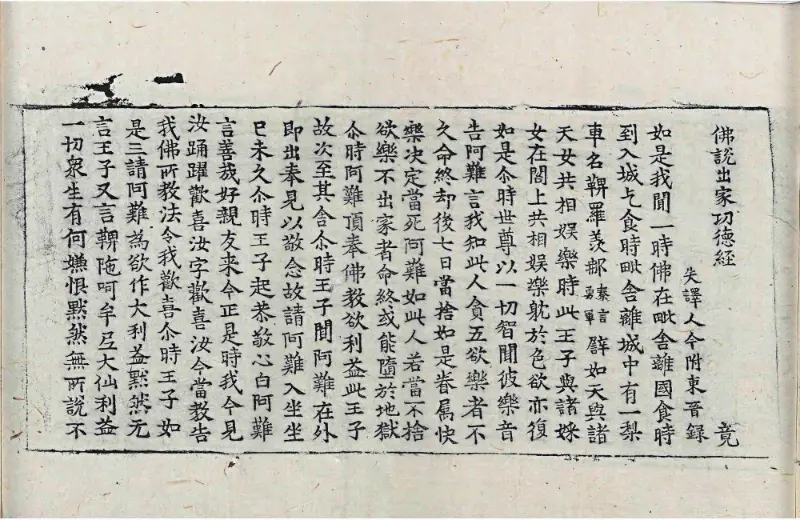 佛說出家功德經 竟
失譯人今附東晉錄
如是我聞一時佛在毗舍離國食時
到入城乞食時毗舍離城中有一梨
車名鞞羅羨那秦言勇軍譬如天與諸
天女共相娛樂時此王子與諸婇
女在閣上共相娛樂躭於色欲亦復
如是尒時世尊以一切智聞彼樂音
告阿難言我知此人貪五欲樂者不
久命終却後七日當捨如是眷屬快
樂决定當死阿難如此人若當不捨
欲樂不出家者命終或能墮於地獄
尒時阿難頂奉佛教欲利益此王子
故次至其舍尒時王子聞阿難在外
即出奉見以敬念故請阿難入坐坐
已未久尒時王子起恭敬心白阿難
言善哉好親友来今正是時我今見
汝踊躍歡喜汝字歡喜汝今當教告
我佛所教法令我歡喜尒時王子如
是三請阿難為欲作大利益默然无
言王子又言鞞陁呵牟尼大仙利益
一切衆生有何嫌恨默然無所說不